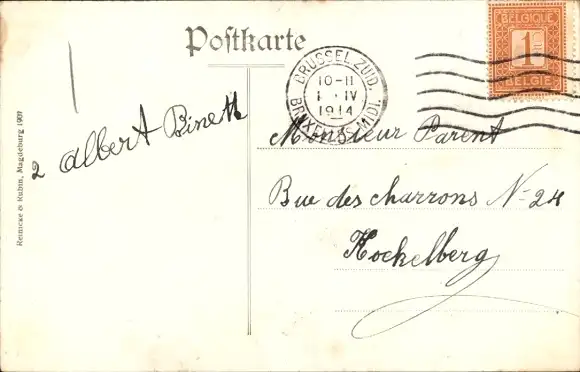 Postkarte
BRUSSEL ZUID.
10-11
1 IV
1914
BRUXELLES MIDI.
BELGIQUE
1
BELGIE
2 Albert Bineth
Monsieur Parent
Rue des charrons N- 24
Kockelberg
Reinicke & Rubin, Magdeburg 1909